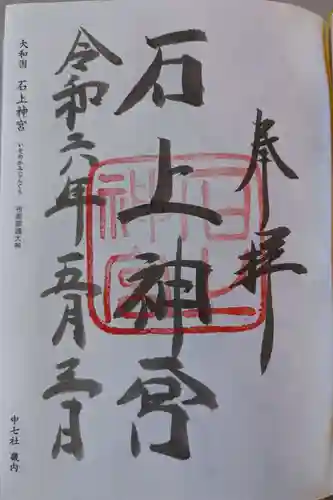 奉拝
石上神宮
令和六年五月三日
大和国 石上神宮 いそのかみじんぐう
中七社 畿内
石上
神宮